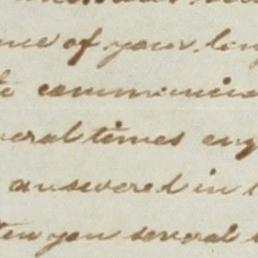 nce of your long
to communica
veral times eng
answered in l
tten you several